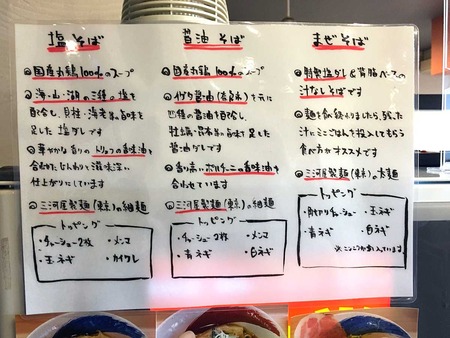 塩そば
◎国産丸鶏100%のスープ
◎海・山・湖の三種の塩を
配合し、貝柱・海老等の旨味を
足した塩ダレです
◎華やかな香りのトリュフの香味油を
合わせた
仕上がりにしています
◎三河屋製麺(東京)の細麺
トッピング
・チャーシュー2枚 ・メンマ
・玉ネギ ・カイワレ
醤油そば
◎国産丸鶏100%のスープ
◎イゲタ醤油(奈良)を元に
四種の醤油を配合し、
牡蠣・昆布等の旨味を足した
醤油ダレです
◎香り高いポルチーニの香味油を
合わせています
◎三河屋製麺(東京)の細麺
トッピング
・チャーシュー2枚 ・メンマ
・青ネギ ・白ネギ
まぜそば
◎特製塩ダレ&背脂ベースの
汁なしそばです
◎麺を食べ終わりましたら、残った
汁にミニごはんを投入してもらう
食べ方がオススメです
◎三河屋製麺(東京)の太麺
トッピング
・角切りチャーシュー ・玉ネギ
・青ネギ ・白ネギ